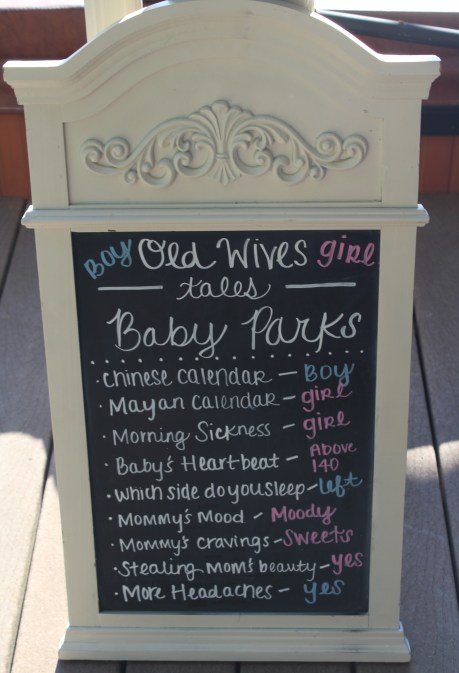 Boy Old Wives girl
tales
Baby Parks
· Chinese Calendar – Boy
· Mayan Calendar – girl
· Morning Sickness – girl
· Baby's Heartbeat – Above 140
· Which side do you sleep – left
· Mommy's Mood – Moody
· Mommy's Cravings – Sweets
· Stealing Mom's beauty – yes
· More Headaches – yes